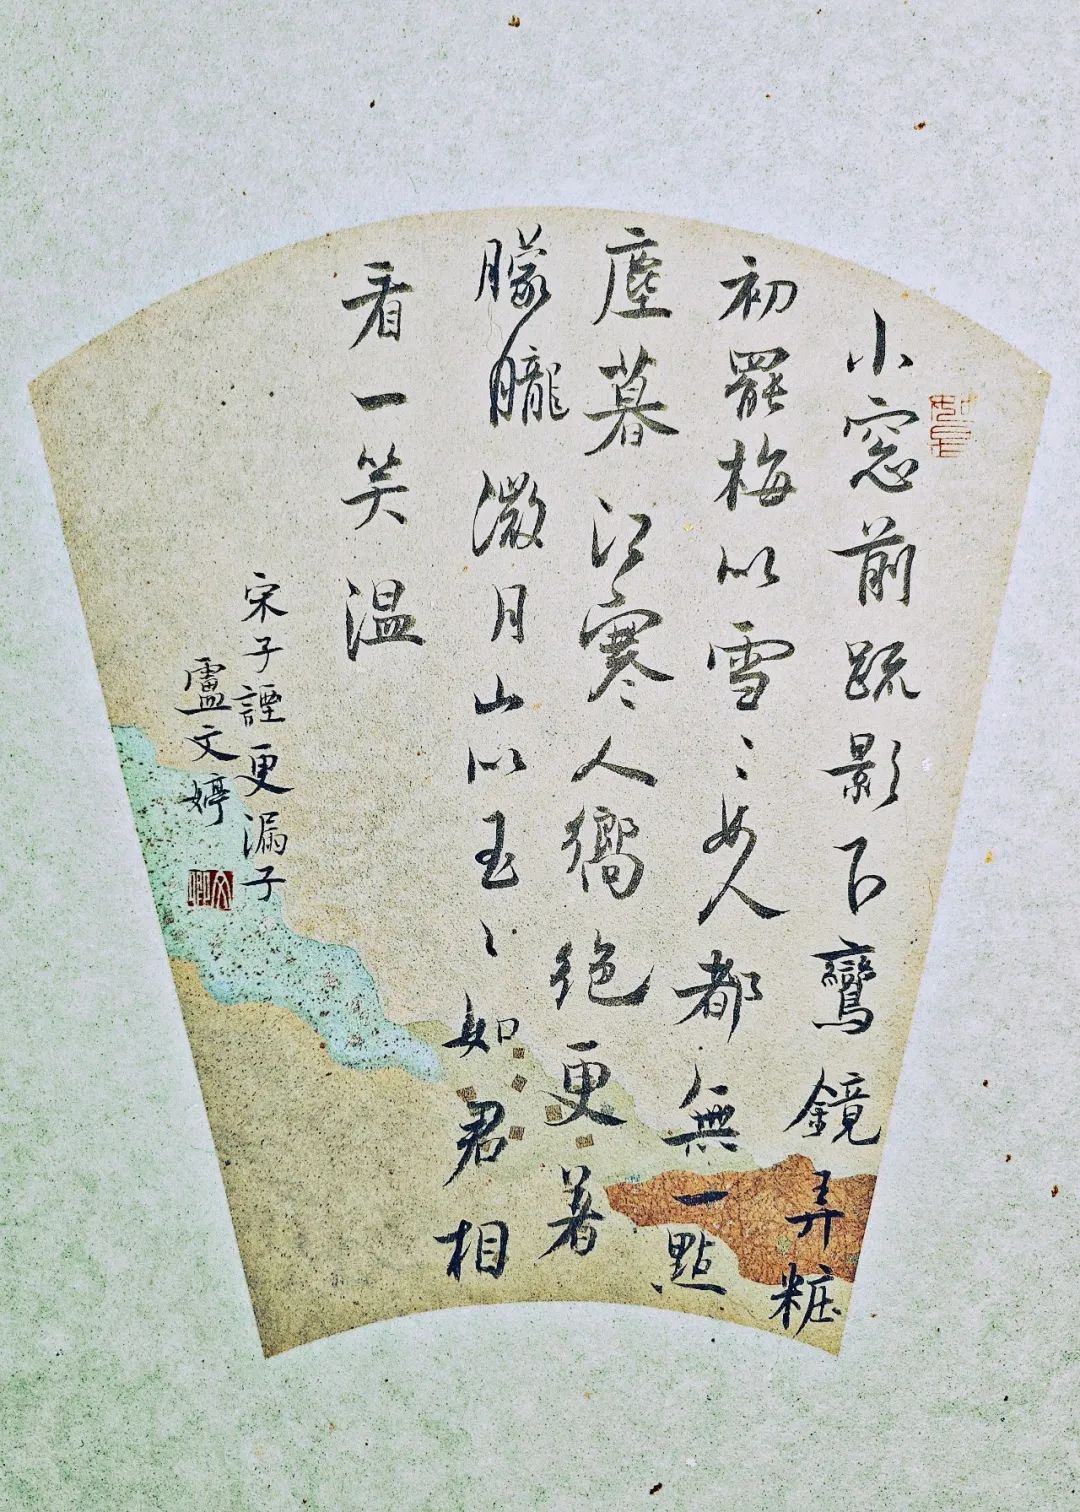 小窓前疏影下鸞鏡弄粧
初罷梅似雪〻如人都無一點
塵暮江寒人嚮絕更著
朦朧微月山似玉〻如君相
看一笑温
宋子諲更漏子
盧文婷